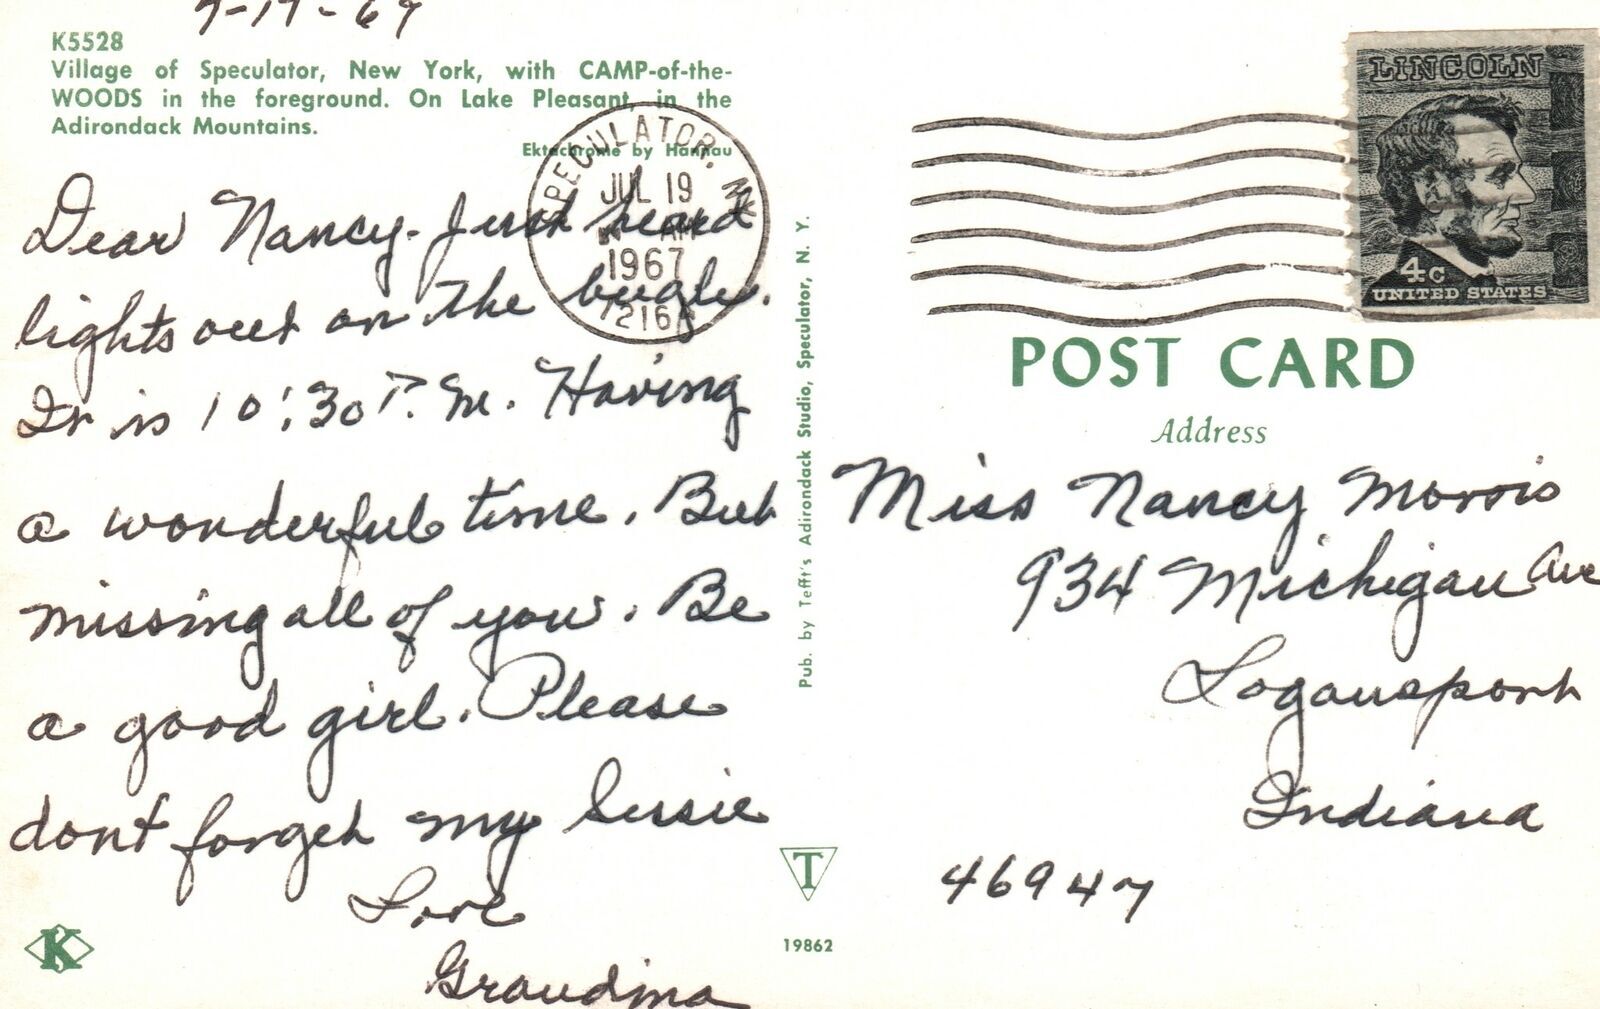 7-17-67
K5528
Village of Speculator, New York, with CAMP-of-the-
WOODS in the foreground. On Lake Pleasant, in the
Adirondack Mountains.
Ektachrome by Hannau
Dear Nancy. Just heard
lights out on the bugle.
It is 10:30 P.M. Having
a wonderful time. But
missing all of you. Be
a good girl. Please
dont forget my Sissie
Love
Grandma
SPECULATOR, N.Y.
JUL 19
AM
1967
12164
Pub. by Tefft's Adirondack Studio, Speculator, N. Y.
T
19862
K
LINCOLN
4c
UNITED STATES
POST CARD
Address
Miss Nancy Morris
934 Michigan Ave
Logansport
Indiana
46947